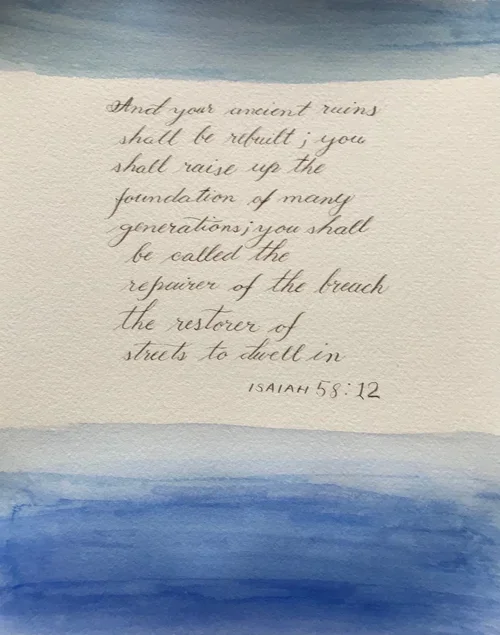 And your ancient ruins
shall be rebuilt; you
shall raise up the
foundation of many
generations; you shall
be called the
repairer of the breach
the restorer of
streets to dwell in
ISAIAH 58:12